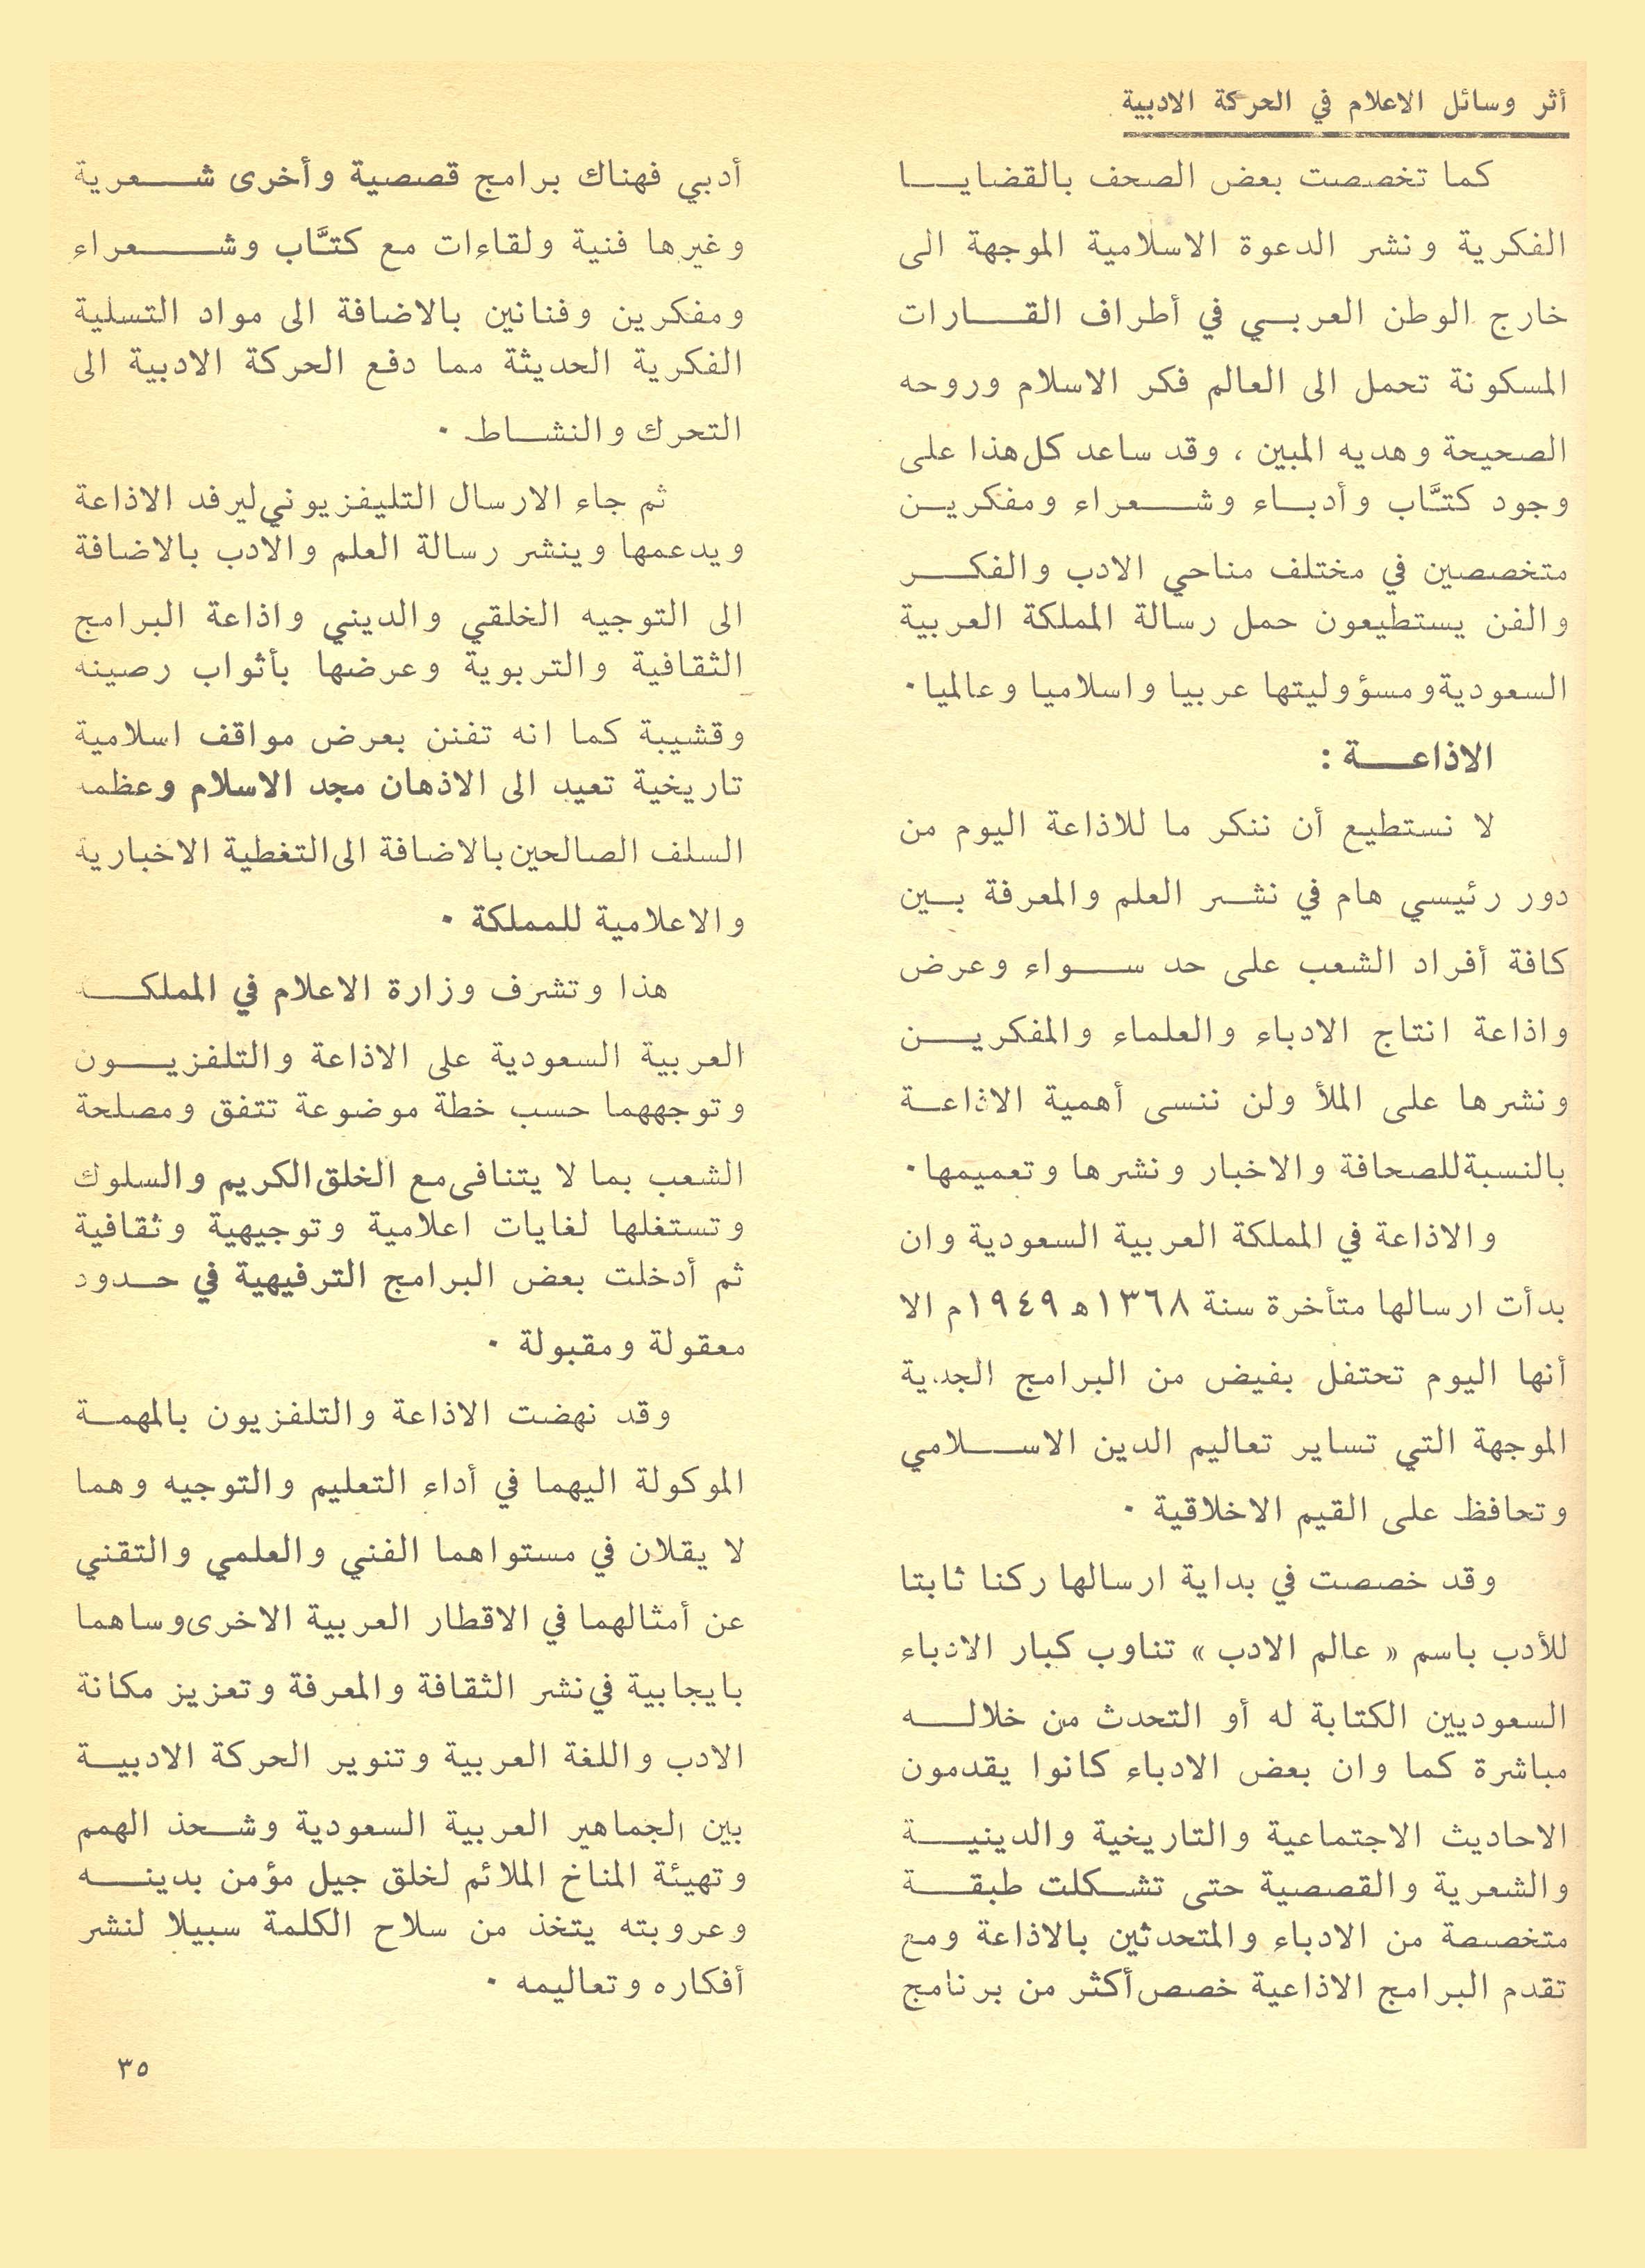 أثر وسائل الاعلام في الحركة الادبية
كما تخصصت بعض الصحف بالقضايا
الفكرية ونشر الدعوة الاسلامية الموجهة الى
خارج الوطن العربي في أطراف القارات
المسكونة تحمل الى العالم فكر الاسلام وروحه
الصحيحة وهديه المبين ، وقد ساعد كل هذا على
وجود كتَّاب وأدباء وشعراء ومفكرين
متخصصين في مختلف مناحي الادب والفكر
والفن يستطيعون حمل رسالة المملكة العربية
السعودية ومسؤوليتها عربيا واسلاميا وعالميا٠
الاذاعة :
لا نستطيع أن ننكر ما للاذاعة اليوم من
دور رئيسي هام في نشر العلم والمعرفة بين
كافة أفراد الشعب على حد سواء وعرض
واذاعة انتاج الادباء والعلماء والمفكرين
ونشرها على الملأ ولن ننسى أهمية الاذاعة
بالنسبة للصحافة والاخبار ونشرها وتعميمها٠
والاذاعة في المملكة العربية السعودية وان
بدأت ارسالها متأخرة سنة ١٣٦٨ه ١٩٤٩م الا
أنها اليوم تحتفل بفيض من البرامج الجدية
الموجهة التي تساير تعاليم الدين الاسلامي
وتحافظ على القيم الاخلاقية ٠
وقد خصصت في بداية ارسالها ركنا ثابتا
للأدب باسم « عالم الادب » تناوب كبار الادباء
السعوديين الكتابة له أو التحدث من خلاله
مباشرة كما وان بعض الادباء كانوا يقدمون
الاحاديث الاجتماعية والتاريخية والدينية
والشعرية والقصصية حتى تشكلت طبقة
متخصصة من الادباء والمتحدثين بالاذاعة ومع
تقدم البرامج الاذاعية خصص أكثر من برنامج
أدبي فهناك برامج قصصية وأخرى شعرية
وغيرها فنية ولقاءات مع كتَّاب وشعراء
ومفكرين وفنانين بالاضافة الى مواد التسلية
الفكرية الحديثة مما دفع الحركة الادبية الى
التحرك والنشاط ٠
ثم جاء الارسال التليفزيوني ليرفد الاذاعة
ويدعمها وينشر رسالة العلم والادب بالاضافة
الى التوجيه الخلقي والديني واذاعة البرامج
الثقافية والتربوية وعرضها بأثواب رصينه
وقشيبة كما انه تفنن بعرض مواقف اسلامية
تاريخية تعيد الى الاذهان مجد الاسلام وعظمة
السلف الصالحين بالاضافة الى التغطية الاخبارية
والاعلامية للمملكة ٠
هذا وتشرف وزارة الاعلام في المملكة
العربية السعودية على الاذاعة والتلفزيون
وتوجههما حسب خطة موضوعة تتفق ومصلحة
الشعب بما لا يتنافى مع الخلق الكريم والسلوك
وتستغلها لغايات اعلامية وتوجيهية وثقافية
ثم أدخلت بعض البرامج الترفيهية في حدود
معقولة ومقبولة ٠
وقد نهضت الاذاعة والتلفزيون بالمهمة
الموكولة اليهما في أداء التعليم والتوجيه وهما
لا يقلان في مستواهما الفني والعلمي والتقني
عن أمثالهما في الاقطار العربية الاخرى وساهما
بايجابية في نشر الثقافة والمعرفة وتعزيز مكانة
الادب واللغة العربية وتنوير الحركة الادبية
بين الجماهير العربية السعودية وشحذ الهمم
وتهيئة المناخ الملائم لخلق جيل مؤمن بدينه
وعروبته يتخذ من سلاح الكلمة سبيلا لنشر
أفكاره وتعاليمه ٠
٣٥